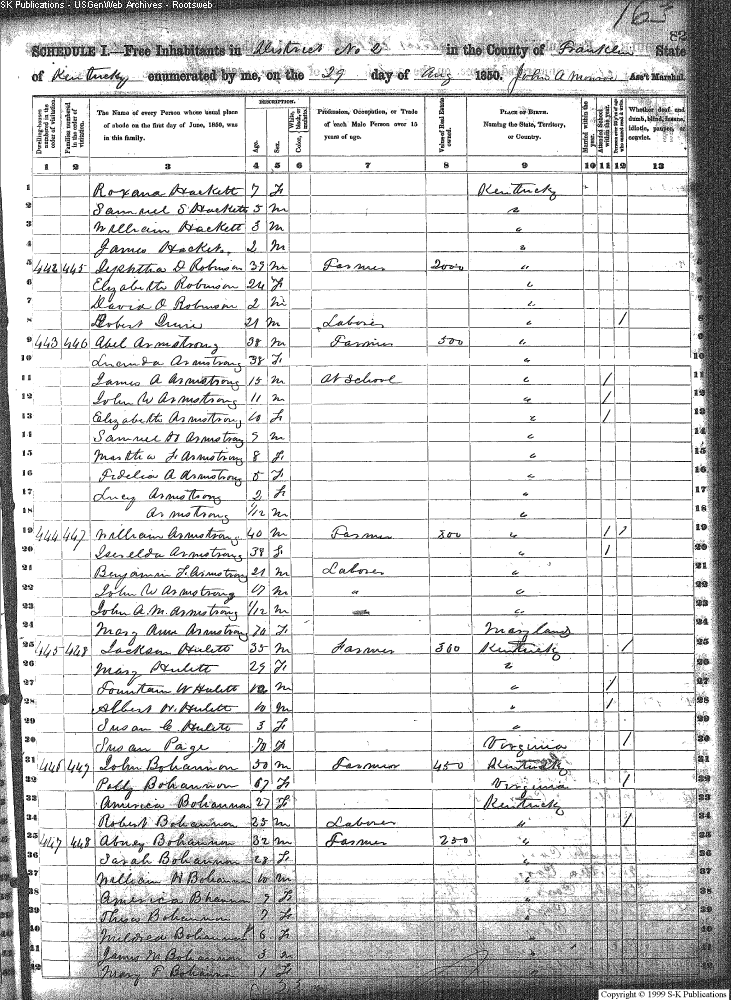 SK Publications - USGenWeb Archives - Rootsweb
163
82
SCHEDULE I.—Free Inhabitants in District No 2 in the County of Franklin State
of Kentucky enumerated by me, on the 29 day of Aug 1850. John A Monroe Ass't Marshal.
Dwelling-houses numbered in the order of visitation.
Families numbered in the order of visitation.
The Name of every Person whose usual place of abode on the first day of June, 1850, was in this family.
DESCRIPTION.
Age.
Sex.
Color, White, black, or mulatto.
Profession, Occupation, or Trade of each Male Person over 15 years of age.
Value of Real Estate owned.
PLACE OF BIRTH. Naming the State, Territory, or Country.
Married within the year.
Attended School within the year.
Whether deaf and dumb, blind, insane, idiotic, pauper, or convict.
1 2 3 4 5 6 7 8 9 10 11 12 13
1 Roxana Hackett 7 F Kentucky
2 Samuel S Hackett 5 m "
3 William Hackett 3 m "
4 James Hackett 2 m "
5 442 445 D Robinson 39 m Farmer 2000 "
6 Elizabeth Robinson 24 F "
7 David O Robinson 2 m "
8 Robert 21 m Laborer " /
9 443 446 Abel Armstrong 38 m Farmer 500 "
10 Lucinda Armstrong 38 F "
11 James A Armstrong 15 m At School " /
12 John W Armstrong 11 m " /
13 Elizabeth Armstrong 10 F " /
14 Samuel Armstrong 9 m "
15 Martha F Armstrong 8 F "
16 Fidelia A Armstrong 5 F "
17 Lucy Armstrong 2 F "
18 Armstrong 1/12 m "
19 444 447 William Armstrong 40 m Farmer 800 " / /
20 Armstrong 38 F " /
21 Benjamin F. Armstrong 21 m Laborer "
22 John W Armstrong 17 m " "
23 John A. M. Armstrong 1/12 m "
24 Mary Ann Armstrong 70 F Maryland
25 445 448 Jackson Hulett 35 m Farmer 300 Kentucky /
26 Mary Hulett 29 F "
27 Fountain W Hulett 12 m " /
28 Albert Hulett 10 m " /
29 Susan C Hulett 3 F "
30 Susan Page 70 F Virginia /
31 446 447 John Bohannon 50 m Farmer 450 Kentucky
32 Polly Bohannon 67 F Virginia /
33 America Bohannon 27 F Kentucky
34 Robert Bohannon 25 m Laborer " /
35 447 448 Abney Bohannon 32 m Farmer 250 "
36 Sarah Bohannon 28 F "
37 William H Bohannon 10 m "
38 America Bohannon 9 F "
39 Bohannon 7 F "
40 Mildred Bohannon 6 F "
41 James M Bohannon 3 "
42 Mary F Bohannon 1 F "
Copyright © 1999 S-K Publications